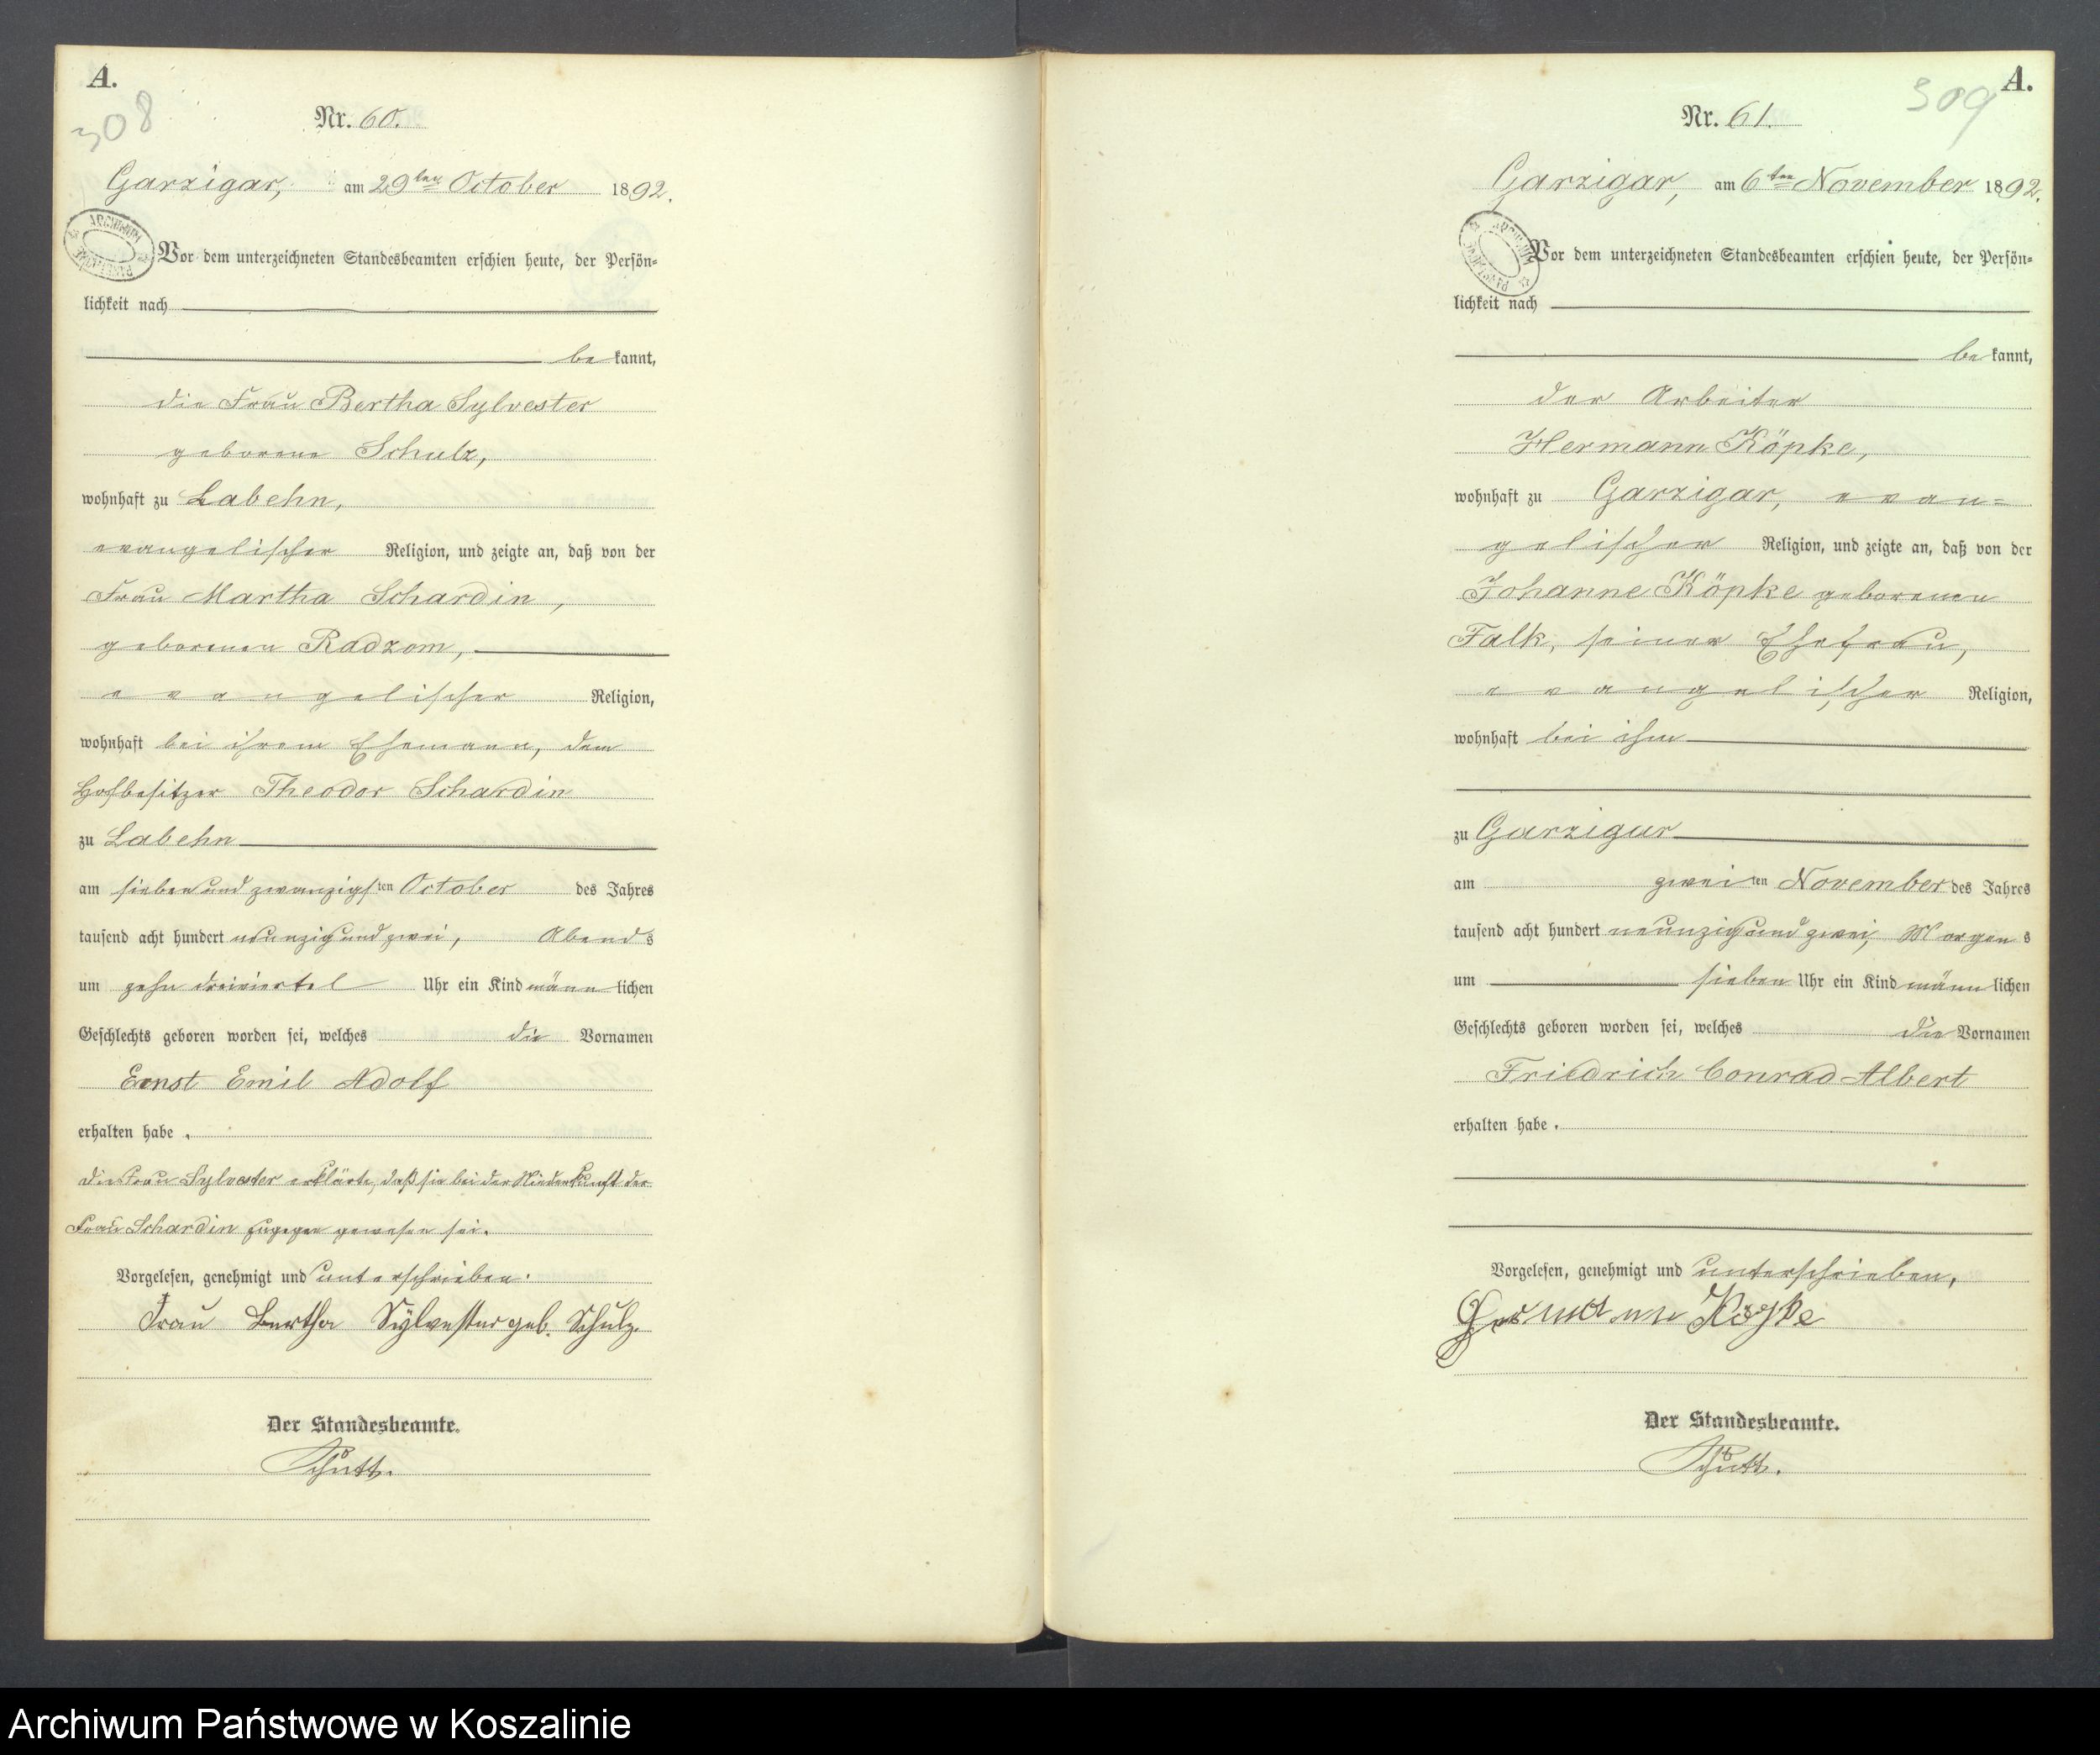 A.
308
Nr. 60.
Garzigar, am 29ten October 1892.
Vor dem unterzeichneten Standesbeamten erschien heute, der Persön=
lichkeit nach
be kannt,
die Frau Bertha Sylvester
geborene Schulz,
wohnhaft zu Labehn,
evangelischer Religion, und zeigte an, daß von der
Frau Martha Schardin,
geborenen Radzom,
evangelischer Religion,
wohnhaft bei ihrem Ehemann, dem
Hofbesitzer Theodor Schardin
zu Labehn
am siebenundzwanzigsten October des Jahres
tausend acht hundert neunzig und zwei, Abends
um zehn dreiviertel Uhr ein Kind männlichen
Geschlechts geboren worden sei, welches die Vornamen
Ernst Emil Adolf
erhalten habe.
Die Frau Sylvester erklärte, daß sie bei der Niederkunft der
Frau Schardin zugegen gewesen sei.
Vorgelesen, genehmigt und unterschrieben.
Frau Bertha Sylvester geb. Schulz.
Der Standesbeamte.
A.
309
Nr. 61.
Garzigar, am 6ten November 1892.
Vor dem unterzeichneten Standesbeamten erschien heute, der Persön=
lichkeit nach
be kannt,
der Arbeiter
Hermann Köpke,
wohnhaft zu Garzigar, evan=
gelischer Religion, und zeigte an, daß von der
Johanne Köpke geborenen
Falk, seiner Ehefrau,
evangelischer Religion,
wohnhaft bei ihm
zu Garzigar
am zweiten November des Jahres
tausend acht hundert neunzig und zwei, Morgens
um sieben Uhr ein Kind männlichen
Geschlechts geboren worden sei, welches die Vornamen
Friedrich Conrad Albert
erhalten habe.
Vorgelesen, genehmigt und unterschrieben.
Hermann Köpke
Der Standesbeamte.
Archiwum Państwowe w Koszalinie